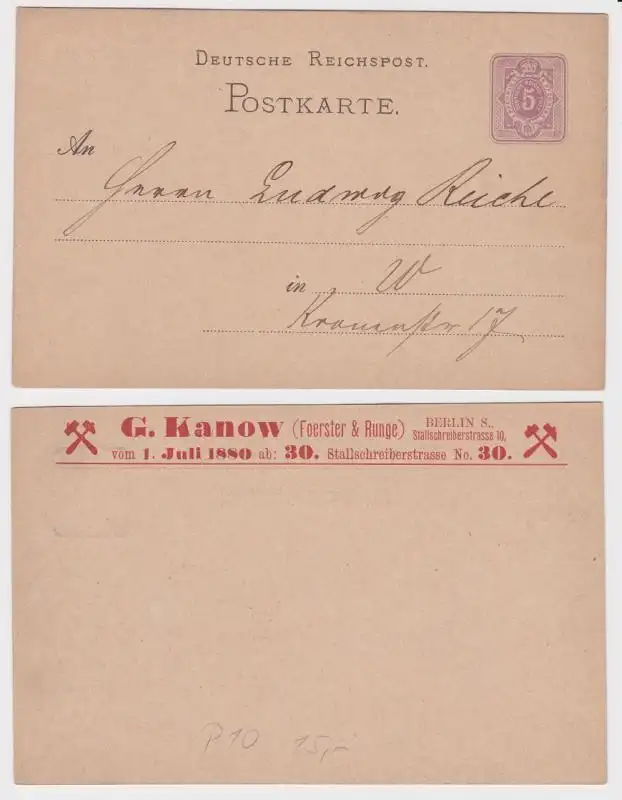 DEUTSCHE REICHSPOST.
POSTKARTE.
5
An
Herrn Ludwig Reiche
in W
Kronenstr 17
G. Kanow (Foerster & Runge) BERLIN S., Stallschreiberstrasse 10,
vom 1. Juli 1880 ab: 30. Stallschreiberstrasse No. 30.
P10 15,-